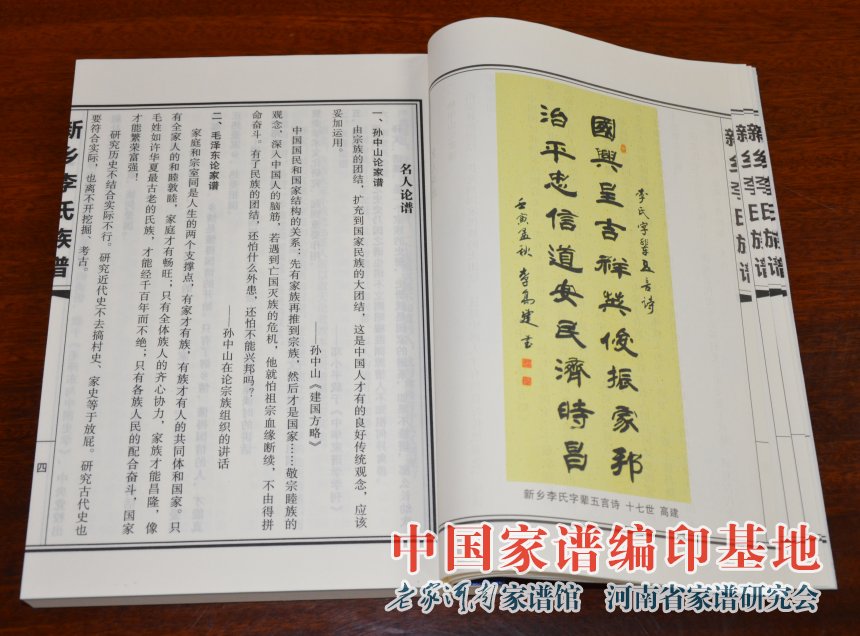 新乡李氏族谱
名人论谱
一、孙中山论家谱
由宗族的团结，扩充到国家民族的大团结，这是中国人才有的良好传统观念，应该
妥加运用。
——孙中山《建国方略》
中国国民和国家结构的关系：先有家族再推到宗族，然后才是国家……敬宗睦族的
观念，深入中国人的脑筋，若遇到亡国灭族的危机，他就怕祖宗血缘断续，不由得拼
命奋斗。有了民族的团结，还怕什么外患，还怕不能兴邦吗？
——孙中山在论宗族组织的讲话
二、毛泽东论家谱
家庭和宗室同是人生的两个支撑点，有家才有族，有族才有人的共同体和国家。只
有全家人的和睦敦睦，家庭才有畅旺；只有全体族人的齐心协力，家族才能昌隆，像
毛姓如许华夏最古老的氏族，才能经千百年而不绝；只有各族人民的配合奋斗，国家
才能繁荣富强！
研究历史不结合实际不行。研究近代史不去搞村史、家史等于放屁。研究古代史也
要符合实际，也离不开挖掘、考古。
四
李氏字輩五言诗
國興呈吉祥英俊振家邦
治平忠信道安民濟時昌
壬寅孟秋 李高建书
新乡李氏字辈五言诗 十七世 高建
新乡李氏族谱
新乡李氏族谱
新乡李氏族谱
中国家谱编印基地
老家河南家谱馆 河南省家谱研究会